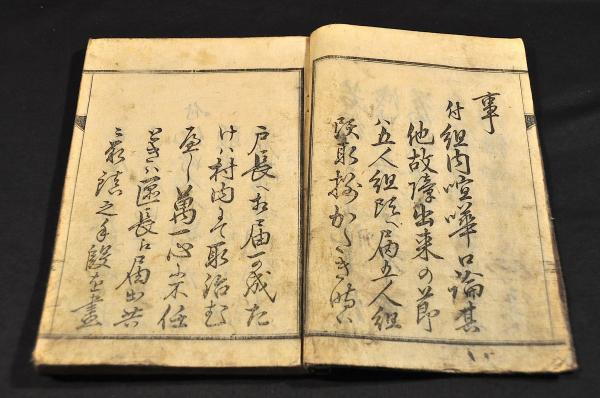 事
付組内喧嘩口論其
他故障出来の節
ハ五人組頭へ届五人組
頭取扱かたき時ハ
戸長へ相届可成た
けハ村内ニ而取治
万一心ニ不任
ときハ区長江届出其
之手段を尽